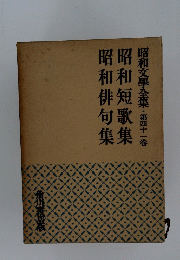 昭和文學全集 第四十一卷
昭和短歌集
昭和俳句集